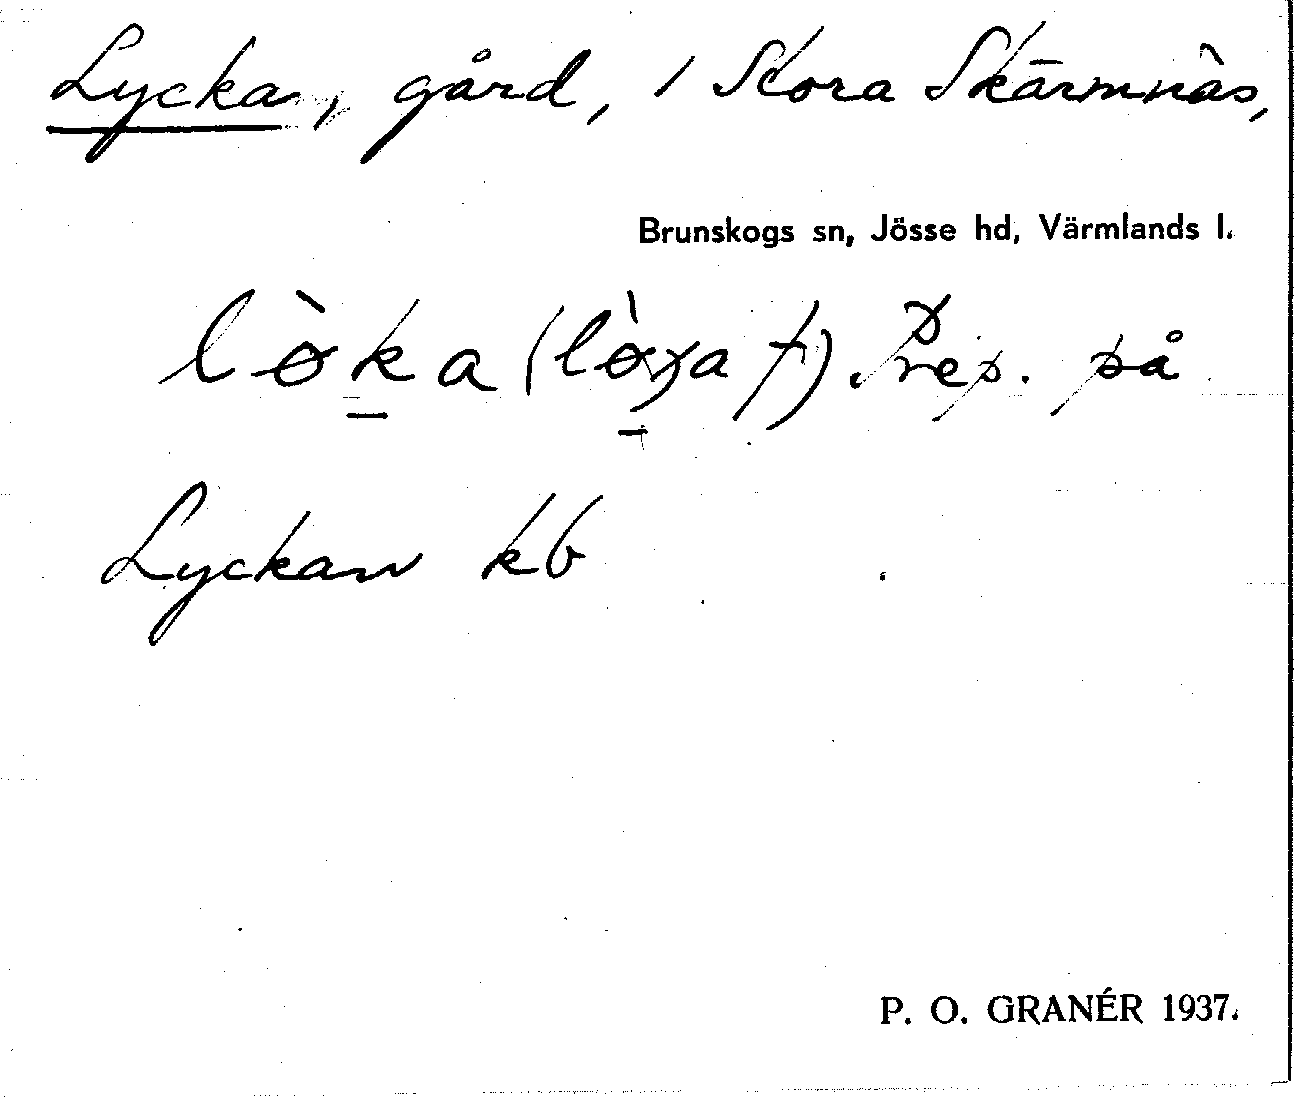 Lycka, gård, i Stora Skärmnäs,
Brunskogs sn, Jösse hd, Värmlands l.
lø̀ka (lø̀χa †) Prep. på
Lyckan kb
P. O. GRANÉR 1937.